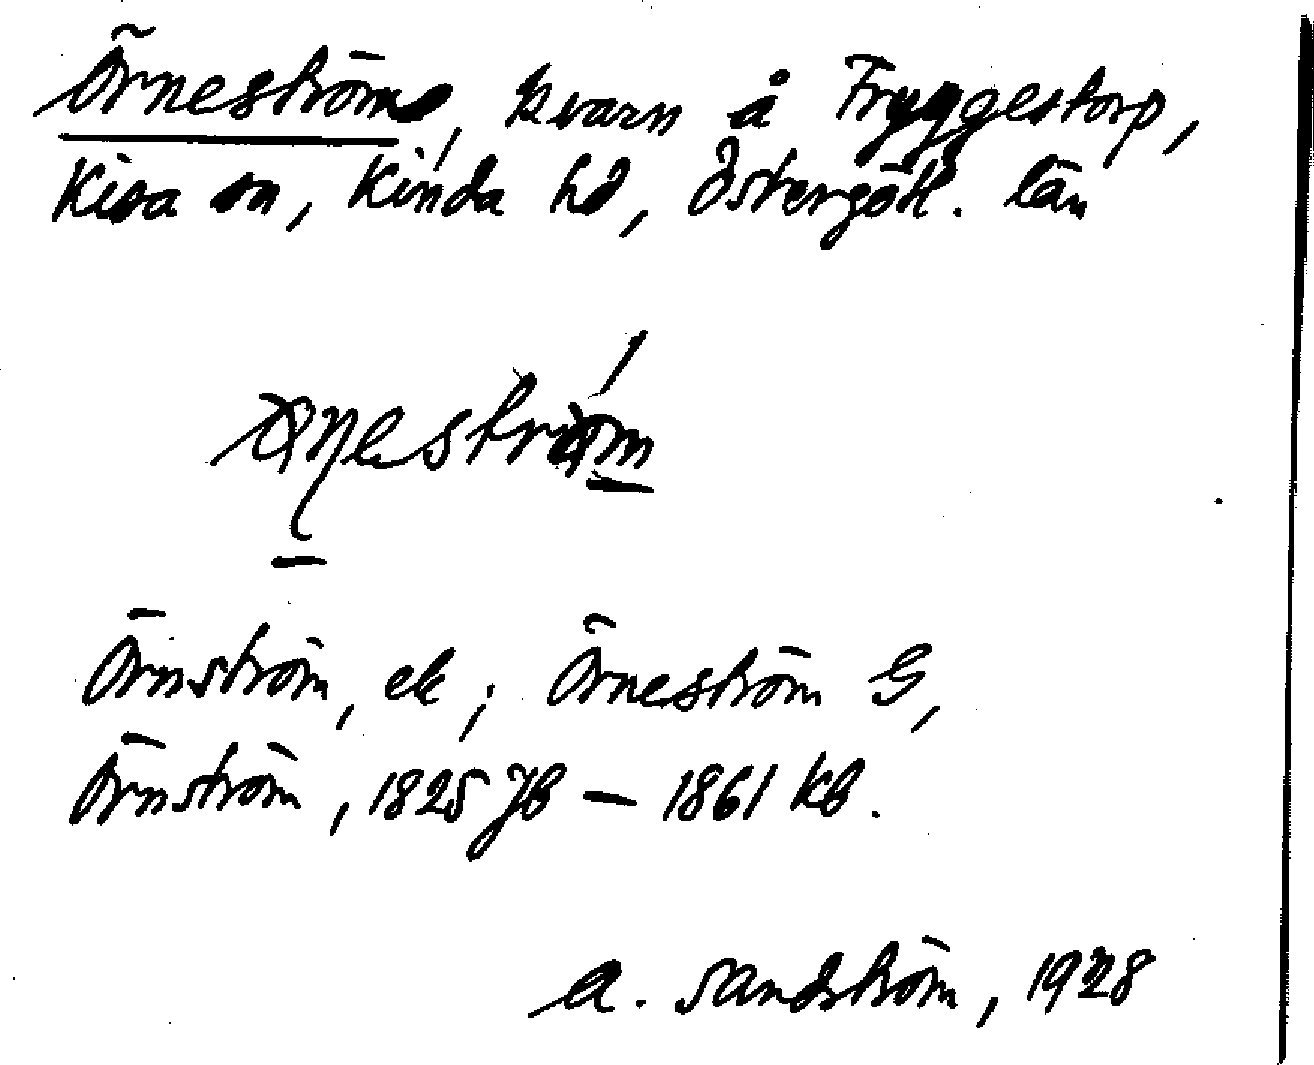 Örneström, kvarn å Fryggestorp,
Kisa sn, Kinda hd, Östergötl. län
Örnström, ek; Örneström G,
Örnström, 1825 Jb — 1861 Kb.
A. Sandström, 1928